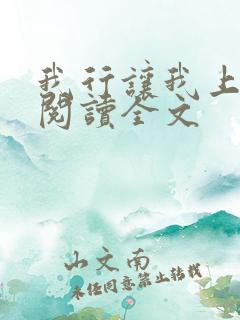 我行讓我上
閱讀全文
山文南
未经同意禁止转载